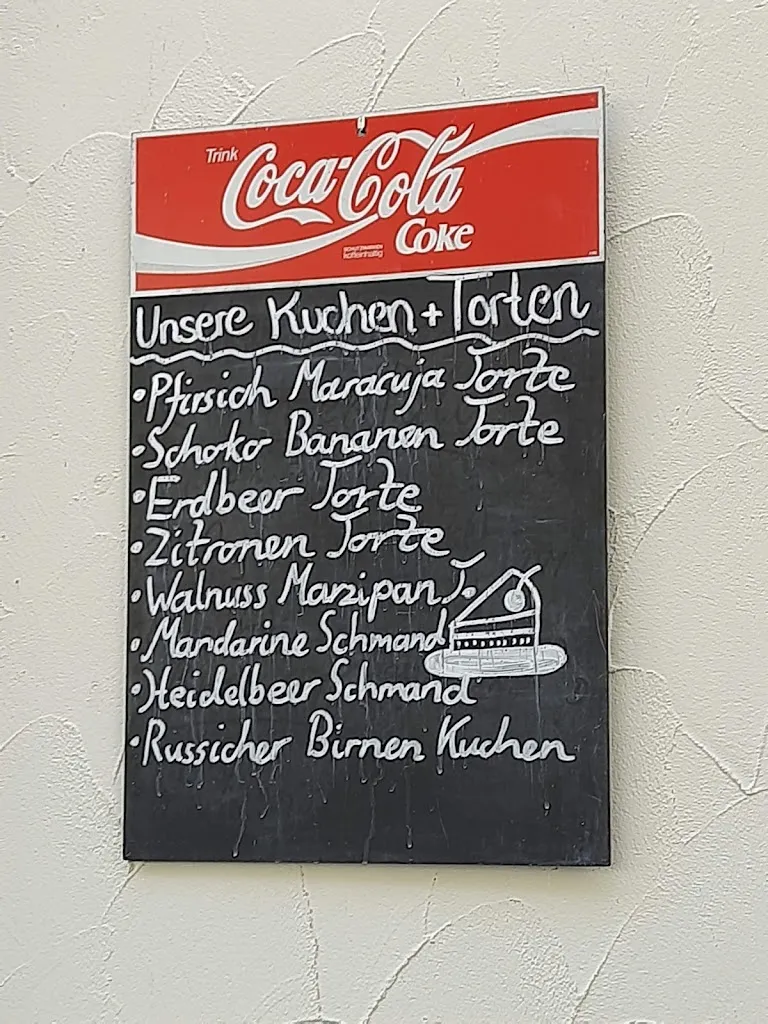 Trink
Coca-Cola
Coke
koffeinhaltig
Unsere Kuchen + Torten
• Pfirsich Maracuja Torte
• Schoko Bananen Torte
• Erdbeer Torte
• Zitronen Torte
• Walnuss Marzipan T.
• Mandarine Schmand
• Heidelbeer Schmand
• Russicher Birnen Kuchen